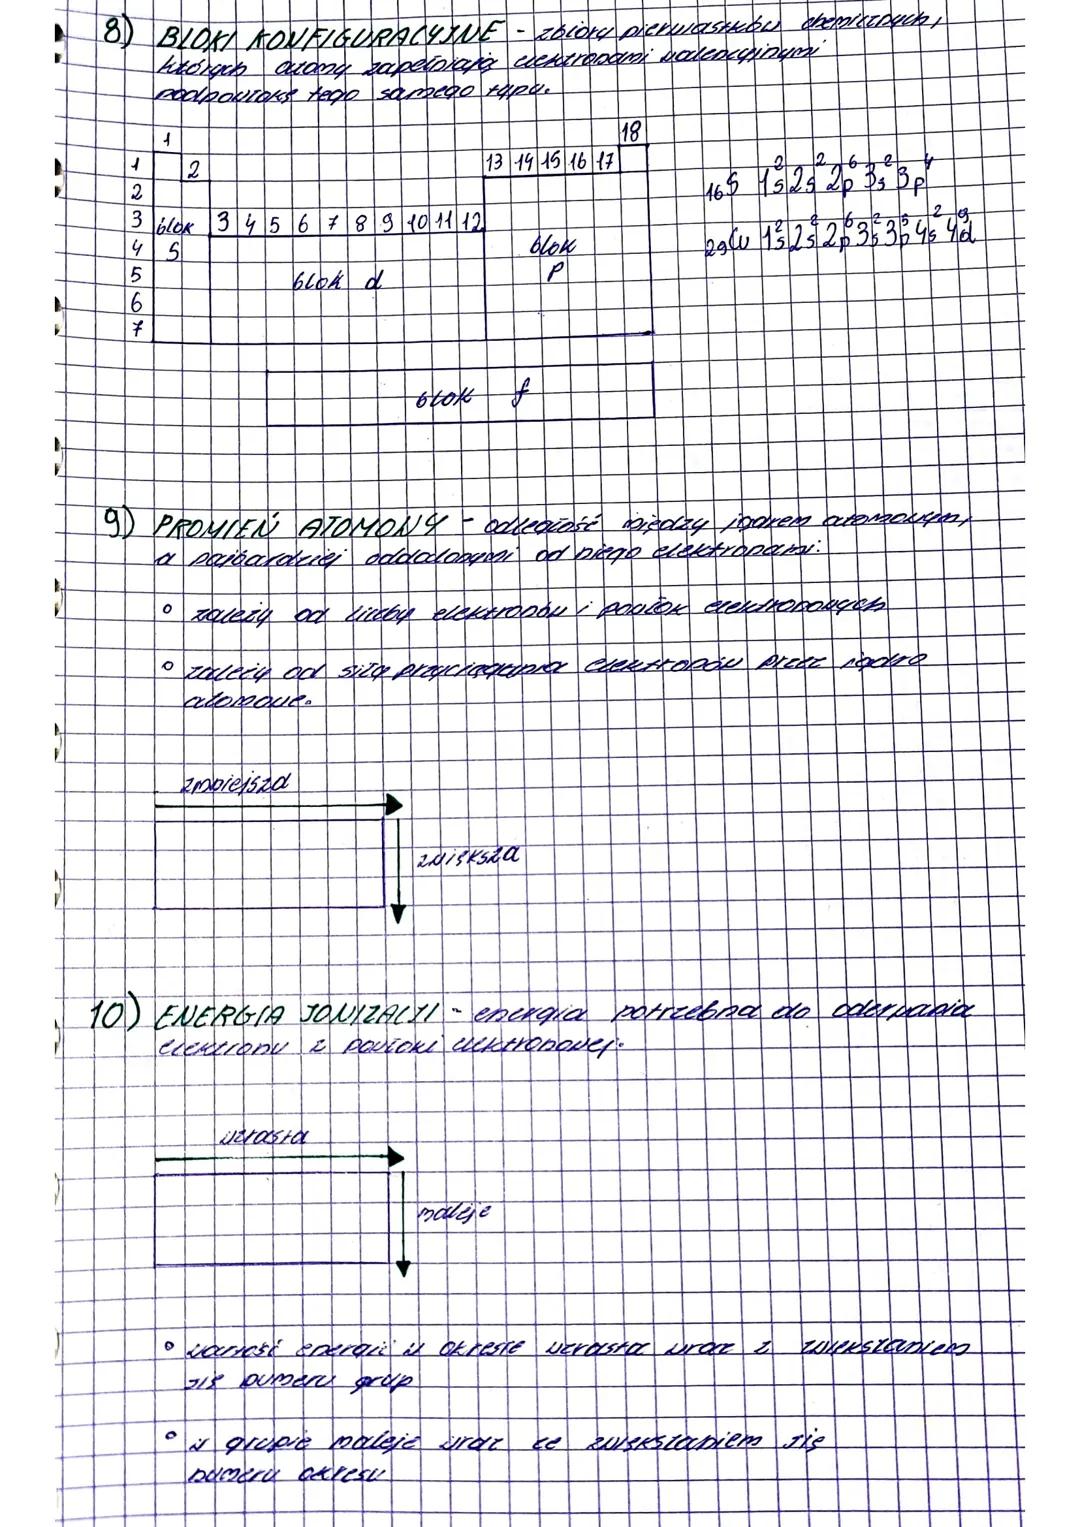 8) BLOKI KONFIGURACYJNE - zbiory pierwiastków chemicznych,
których atomy zapełniają elektronami walencyjnymi
podpowłokę tego samego typu.
1
18
1 2 13 14 15 16 17
2
3 blok 3 4 5 6 7 8 9 10 11 12
4 S blok
5 blok d P
6
7
blok f
16S 1s² 2s² 2p⁶ 3s² 3p⁴
29Cu 1s² 2s² 2p⁶ 3s² 3p⁵ 4s² 4d⁹
9) PROMIEŃ ATOMOWY - odległość między jądrem atomowym,
a najbardziej oddalonymi od niego elektronami:
° zależy od liczby elektronów i powłok elektronowych
° zależy od siły przyciągania elektronów przez jądro
atomowe.
zmniejsza
zwiększa
10) ENERGIA JONIZACJI - energia potrzebna do oderwania
elektronu z powłoki elektronowej.
wzrasta
maleje
° wartość energii w okresie wzrasta wraz z zwiększaniem
się numeru grup
° w grupie maleje wraz ze zwiększaniem się
numeru okresu